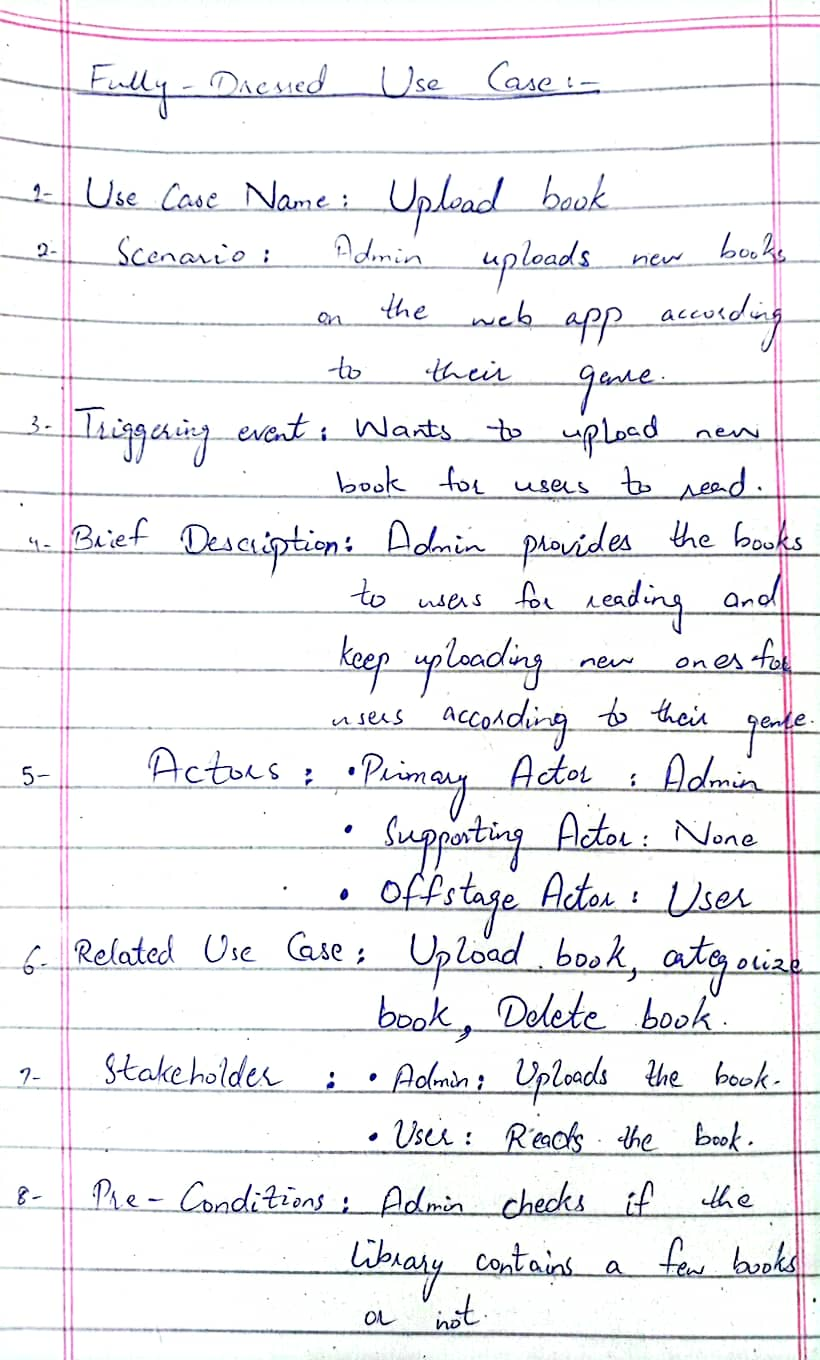 Fully-Dressed Use Case:-
1- Use Case Name: Upload book
2- Scenario: Admin uploads new books
on the web app according
to their genre.
3- Triggering event: Wants to upload new
book for users to read.
4- Brief Description: Admin provides the books
to users for reading and
keep uploading new ones for
users according to their genre.
5- Actors: • Primary Actor : Admin
• Supporting Actor: None
• Offstage Actor: User
6- Related Use Case: Upload book, categorize
book, Delete book.
7- Stakeholder : • Admin: Uploads the book.
• User: Reads the book.
8- Pre-Conditions: Admin checks if the
library contains a few books
or not.